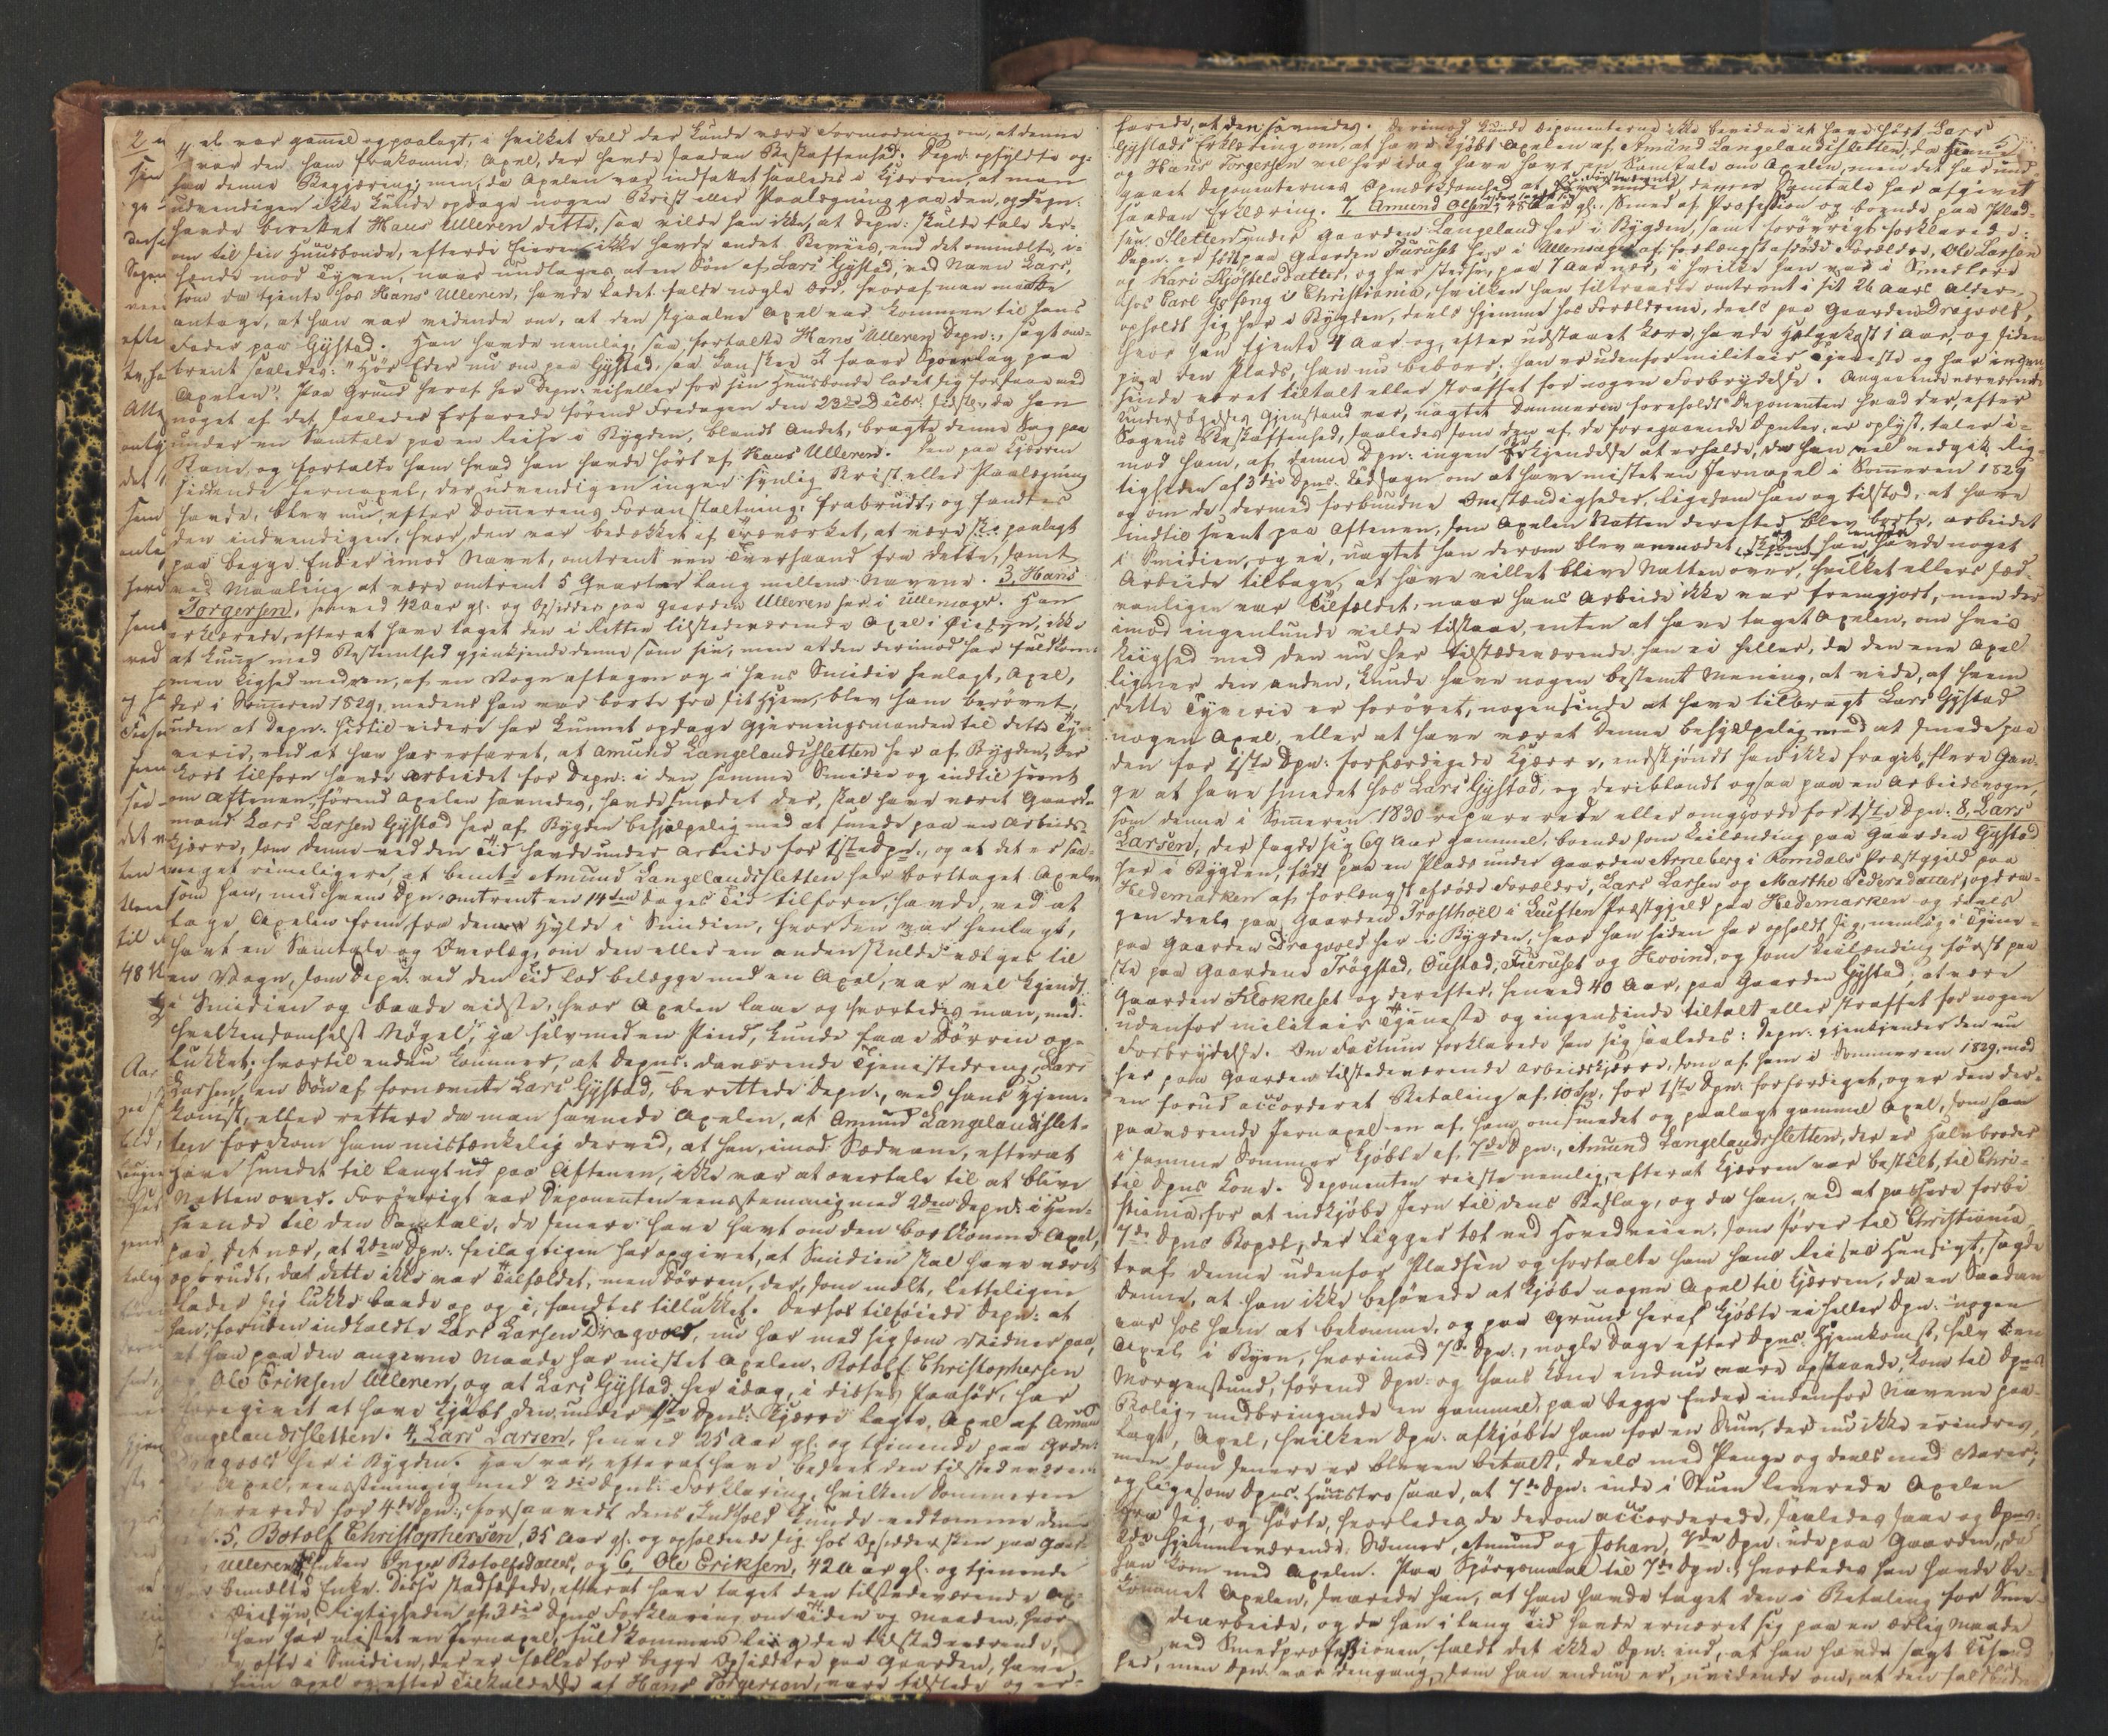 el. var gamel og paalagt, i hvilket Fald der kunde være Formodning om, at denne
var den ham frakomne Axel, der havde saadan Beskaffenhed. Depn: opfyldte og-
saa denne Begjæring, men, da Axelen var indfattet saaledes i Kjærren, at man
udvendigen ikke kunde opdage nogen Brist eller Paalægning paa den, og Depn:
havde berettet Hans Ulleren dette, saa vilde han ikke, at Depn: skulde tale der-
om til sin Huusbonde, efterdi Eieren ikke havde andet Beviis, end det ommeldte, i-
hende mod Tyven, naar undtages at en Søn af Lars Gystad, ved Navn Lars,
som da tjente hos Hans Ulleren, havde ladet falde nogle Ord, hvoraf man maatte
antage, at han var vidende om, at den stjaalne Axel var kommen til hans
Fader paa Gystad. Han havde nemlig, saa fortalte Hans Ulleren Depn:, sagt om-
trent saaledes: "Hør Eder nu om paa Gystad, saa kanskee I faaer Spoerlag paa
Axelen". Paa Grund heraf har Depn: ei heller for sin Huusbonde ladet sig forstaae med
noget af det saaledes Erfarede førend Fredagen den 23de Decbr. sidstl., da han
under en Samtale paa en Reise i Bygden, blandt Andet, bragte denne Sag paa
Bane, og fortalte ham hvad han havde hørt af Hans Ulleren. Den paa Kjærren
siddende Jernaxel, der udvendigen ingen synlig Brist eller Paalægning
havde, blev nu, efter Dommerens Foranstaltning, frabrudt, og fandtes
den indvendigen, hvor den var bedækket af Træværket, at være paalagt
paa begge Ender imod Navet, omtrent een Tverhaand fra dette, samt
ved Maaling at være omtrent 5 Qvarter lang mellem Navene. 3, Hans
Torgersen, henved 42 Aar gl. og Opsidder paa Gaarden Ulleren her i Ullensager. Han
erklærede, efterat have taget den i Retten tilstedeværende Axel i Øiesyn, ikke
at kunne med Bestemthed gjenkjende denne som sin, men at den derimod har fuldkom-
men Lighed med den, af en Vogn aftagen og i hans Smidie henlagt, Axel,
der i Sommeren 1829, medens han var borte fra sit Hjem, blev ham berøvet,
uden at Depn: hidtil videre har kunnet opdage Gjerningsmanden til dette Ty-
veri, end at han har erfaret, at Amund Langelandsletten her af Bygden, der
kort tilforn havde arbeidet for Depn: i den samme Smidie og indtil seent
om Aftenen, førend Axelen savnedes, havde smedet der, skal have været Gaard-
mand Lars Larsen Gystad her af Bygden behjelpelig med at smede paa en Arbeids-
kjærre, som denne ved den Tid havde under Arbeide for 1ste Dpn:, og at det er saa-
meget rimeligere, at bemte Amund Langelandsletten har borttaget Axelen,
som han, med hvem Dpn: omtrent en 14ten Dages Tid tilforn, havde, ved at
tage Axelen frem fra den Hylde i Smidien, hvor den var henlagt,
havt en Samtale og Overlæg, om den eller en anden skulde vælges til
en Vogn, som Depn: ved den Tid lod belægge med en Axel, var vel kjendt
i Smidien og baade vidste, hvor Axelen laae og hvorledes man, med
hvilkensomhelst Nøgel, ja selv med en Pind, kunde faae Dørren op-
lukket; hvortil endnu kommer, at Depns: daværende Tjenestedreng, Lars
Larsen, en Søn af fornævnte Lars Gystad, berettede Depn:, ved hans Hjem-
komst, eller rettere da man savnede Axelen, at Amund Langelandslet-
ten forekom ham mistænkelig derved, at han, imod Sædvane, efterat
have smedet til langt ud paa Aftenen, ikke var at overtale til at blive
Natten over. Forøvrigt var Deponenten eensstemmig med 2den Depn: i Hen-
seende til den Samtale, de senere have havt om den bortkomne Axel,
paa det nær, at 2den Dpn: feilagtigen har opgivet, at Smidien skal have været
opbrudt, da dette ikke var Tilfældet, men Dørren, der, som meldt, letteligen
lader sig lukke baade op og i, fandtes tillukket. Derhos tilføiede Depn: at
han, foruden indkaldte Lars Larsen Dragvold, nu har med sig som Vidner paa,
at han paa den angivne Maade har mistet Axelen, Botolf Christophersen
og Ole Eriksen Ulleren, og at Lars Gystad her idag, i disses Paahør, har
foregivet at have kjøbt den under 1ste Dpns: Kjærre lagte Axel af Amund
Langelandsletten. 4, Lars Larsen, henved 25 Aar gl. og tjenende paa Grdn:
Dragvold her i Bygden. Han var, efterat have beseet den tilstedeværende
Axel, eensstemmig med 3die Dpns: Forklaring, hvilken Dommeren
for 4de Dpn:, forsaavidt dens Indhold kunde vedkomme denne
5, Botolf Christophersen, 35 Aar gl. og opholdende sig hos Opsidderskem paa Gaarden
Ulleren, Enken Inger Botolfsdatter, og 6, Ole Eriksen, 42 Aar gl. og tjenende
bemældte Enke. Disse stadfæstede, efterat have taget den tilstedeværende Ax-
Øiesyn, Rigtigheden af 3die Dpns Forklaring om Tiden og Maaden, hvor-
han har mistet en Jernaxel, fuldkommen liig den tilstedeværende,
de ofte i Smidien, der er fælles for begge Opsiddere paa Gaarden, have
sin Axel og efter Tilkaldelse af Hans Torgersen, vare tilstede og er-
farede, at den savnedes. Derimod kunde Deponenterne ikke bevidne at have hørt Lars
Gystads Erklæring om, at have kjøbt Axelen af Amund Langelandsletten, da denne
og Hans Torgersen vel her idag have havt en Samtale om Axelen, men det har und-
gaaet Deponenternes Opmærksomhed at Førstnævnte under denne Samtale har afgivet
saadan Erklæring. 7, Amund Olsen, 48 Aar gl., Smed af Profession og boende paa Plad-
sen Sletten under Gaarden Langeland her i Bygden, samt forøvrigt forklarede:
Depn: er født paa Gaarden Furuset her i Ullensager af forlængst afdøde Forældre, Ole Larsen
og Kari Kjøstelsdatter, og har stedse, paa 7 Aar nær, i hvilke han var i Smedlære
hos Carl Gotfeng i Christiania, hvilken han tiltraadte omtrent i sit 26 Aars Alder,
opholdt sig her i Bygden, deels hjemme hos Forældrene, deels paa Gaarden Dragvold,
hvor han tjente 4 Aar og, efter udstaaet Lære, havde Huusekast 1 Aar, og siden
paa den Plads, han nu beboer; han er udenfor militair Tjeneste og har ingen-
sinde været tiltalt eller straffet for nogen Forbrydelse. Angaaende nærværende
Undersøgelses Gjenstand var, uagtet Dommeren foreholdt Deponenten hvad der, efter
Sagens Beskaffenhed, saaledes som den af de foregaaende Dpnter: er oplyst, taler i-
mod ham, af denne Dpn: ingen Erkjendelse at erholde, da han vel vedgik Rig-
tigheden af 3die Dpns Udsagn om at have mistet en Jernaxel i Sommeren 1829
og om de dermed forbundne Omstændigheder, ligesom han og tilstod, at have
indtil seent paa Aftenen, som Axelen Natten derefter blev borte, arbeidet
i Smidien, og ei, uagtet han derom blev anmodet og skjønt han endnu havde noget
Arbeide tilbage, at have villet blive Natten over, hvilket ellers sæd-
vanligen var Tilfældet, naar hans Arbeide ikke var fremgjort, men der-
imod ingenlunde vilde tilstaae, enten at have taget Axelen, om hvis
Liighed med den nu her tilstedeværende han ei heller, da den ene Axel
ligner den anden, kunde have nogen bestemt Mening, at vide, af hvem
dette Tyveri er forøvet, nogensinde at have tilbragt Lars Gystad
nogen Axel, eller at have været denne behjælpelig med at smede paa
den for 1ste Dpn: forfærdigede Kjærre, endskjøndt han ikke fragik, flere Gan-
ge at have smedet hos Lars Gystad, og deriblandt ogsaa paa en Arbeidsvogn,
som denne i Sommeren 1830 reparerede eller omgjorde for 1ste Dpn: 8, Lars
Larsen, der sagde sig 69 Aar gammel, boende som Leilænding paa Gaarden Gystad
her i Bygden, født paa en Plads under Gaarden Arneberg i Romdals Præstegjeld paa
Hedemarken af forlængst afdøde Forældre, Lars Larsen og Marthe Pedersdatter, opdra-
gen deels paa Gaarden Frosthoel i Leuften Præstegjeld paa Hedemarken og deels
paa Gaarden Dragvold her i Bygden, hvor han siden har opholdt sig, nemlig i Tjene-
ste paa Gaardene Trøgstad, Oustad, Furuset og Hovind, og som Leilænding først paa
Gaarden Klokkeset og derefter, henved 40 Aar, paa Gaarden Gystad, at være
udenfor militair Tjeneste og ingensinde tiltalt eller straffet for nogen
Forbrydelse. Om Factum forklarede han sig saaledes: Depn: gjenkjender den nu
her paa Gaarden tilstedeværende Arbeidskjærre, som af ham i Sommeren 1829, mod
en forud accorderet Betaling af 10 Spd, for 1ste Dpn: forfærdiget, og er den der-
paaværende Jernaxel en af ham omsmedet og paalagt gammel Axel, som han
i samme Sommer kjøbte af 7de Dpn:, Amund Langelandsletten, der er Halvbroder
til Dpns Kone. Deponenten reiste nemlig, efterat Kjærren var bestilt, til Chri-
stiania for at indkjøbe Jern til dens Beslag, og da han, ved at passere forbi
7de Dpns Bopæl, der ligger tæt ved Hovedveien, som fører til Christiania,
traf denne udenfor Pladsen og fortalte ham hans Reises Hensigt, sagde
denne, at han ikke behøvede at kjøbe nogen Axel til Kjærren, da en Saadan
var hos ham at bekomme, og paa Grund heraf kjøbte ei heller Dpn: nogen
Axel i Byen, hvorimod 7de Dpn:, nogle Dage efter Dpns: Hjemkomst, selv en
Morgenstund, førend Dpn: og hans Kone endnu vare opstaaende, kom til Dpns
Bolig, medbringende en gammel, paa begge Ender indenfor Navene paa-
lagt, Axel, hvilken Dpn: afkjøbte ham for en Sum, der nu ikke erindres,
men som senere er bleven betalt, deels med Penge og deels med Varer;
og ligesom Dpns: Huustro saae, at 7de Dpn: inde i Stuen leverede Axelen
fra sig, og hørte, hvorledes de derom accorderede, saaledes saae og Dpns:
2de hjemmeværende Sønner, Amund og Johan, 7de Dpn: ude paa Gaarden, da
han kom med Axelen. Paa Spørgsmaal til 7de Dpn:, hvorledes han havde be-
kommet Axelen, svarede han, at han havde taget den i Betaling for Sme-
dearbeide, og da han i lang Tid havde ernæret sig paa en ærlig Maade
ved Smedprofessionen, faldt det ikke Dpn: ind, at han havde sagt Usand-
hed, men Dpn: var dengang, som han endnu er, uvidende om, at den falbudne